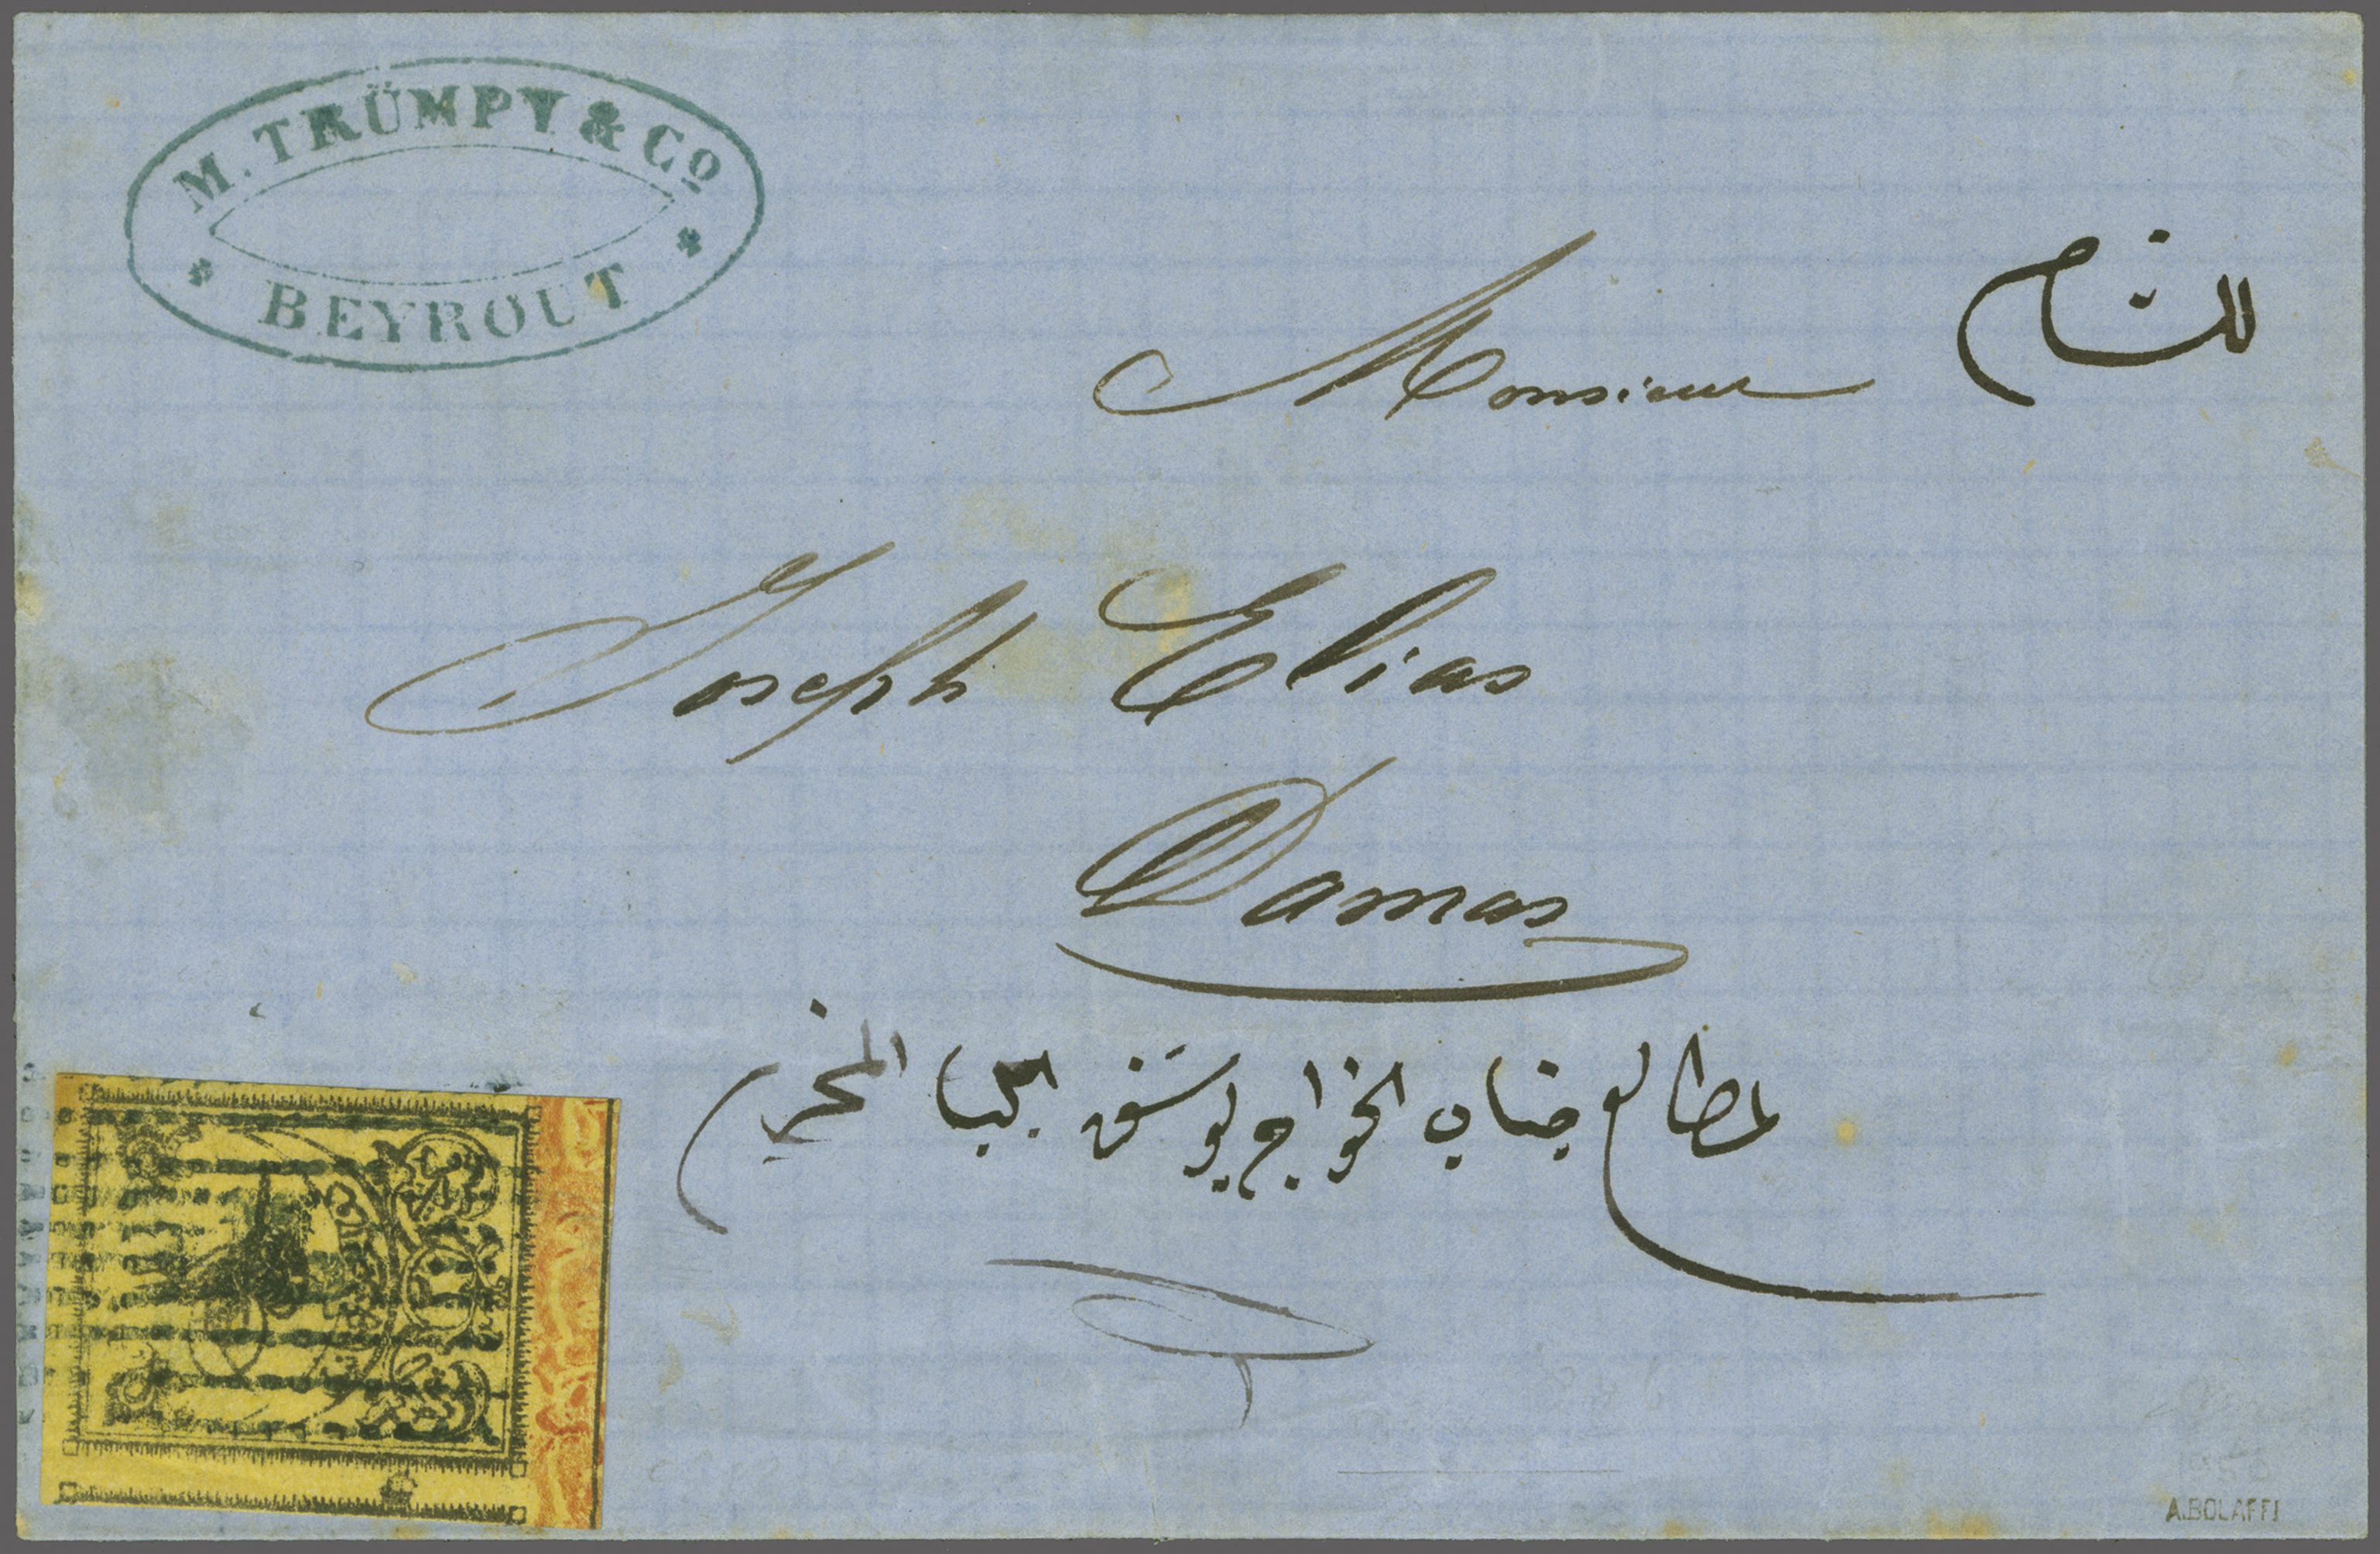 M. TRÜMPY & Co
BEYROUT
للشام
Monsieur
Joseph Elias
Damas
لمطالع جناب الخواج يوسف اليا المحترم
A.BOLAFFI